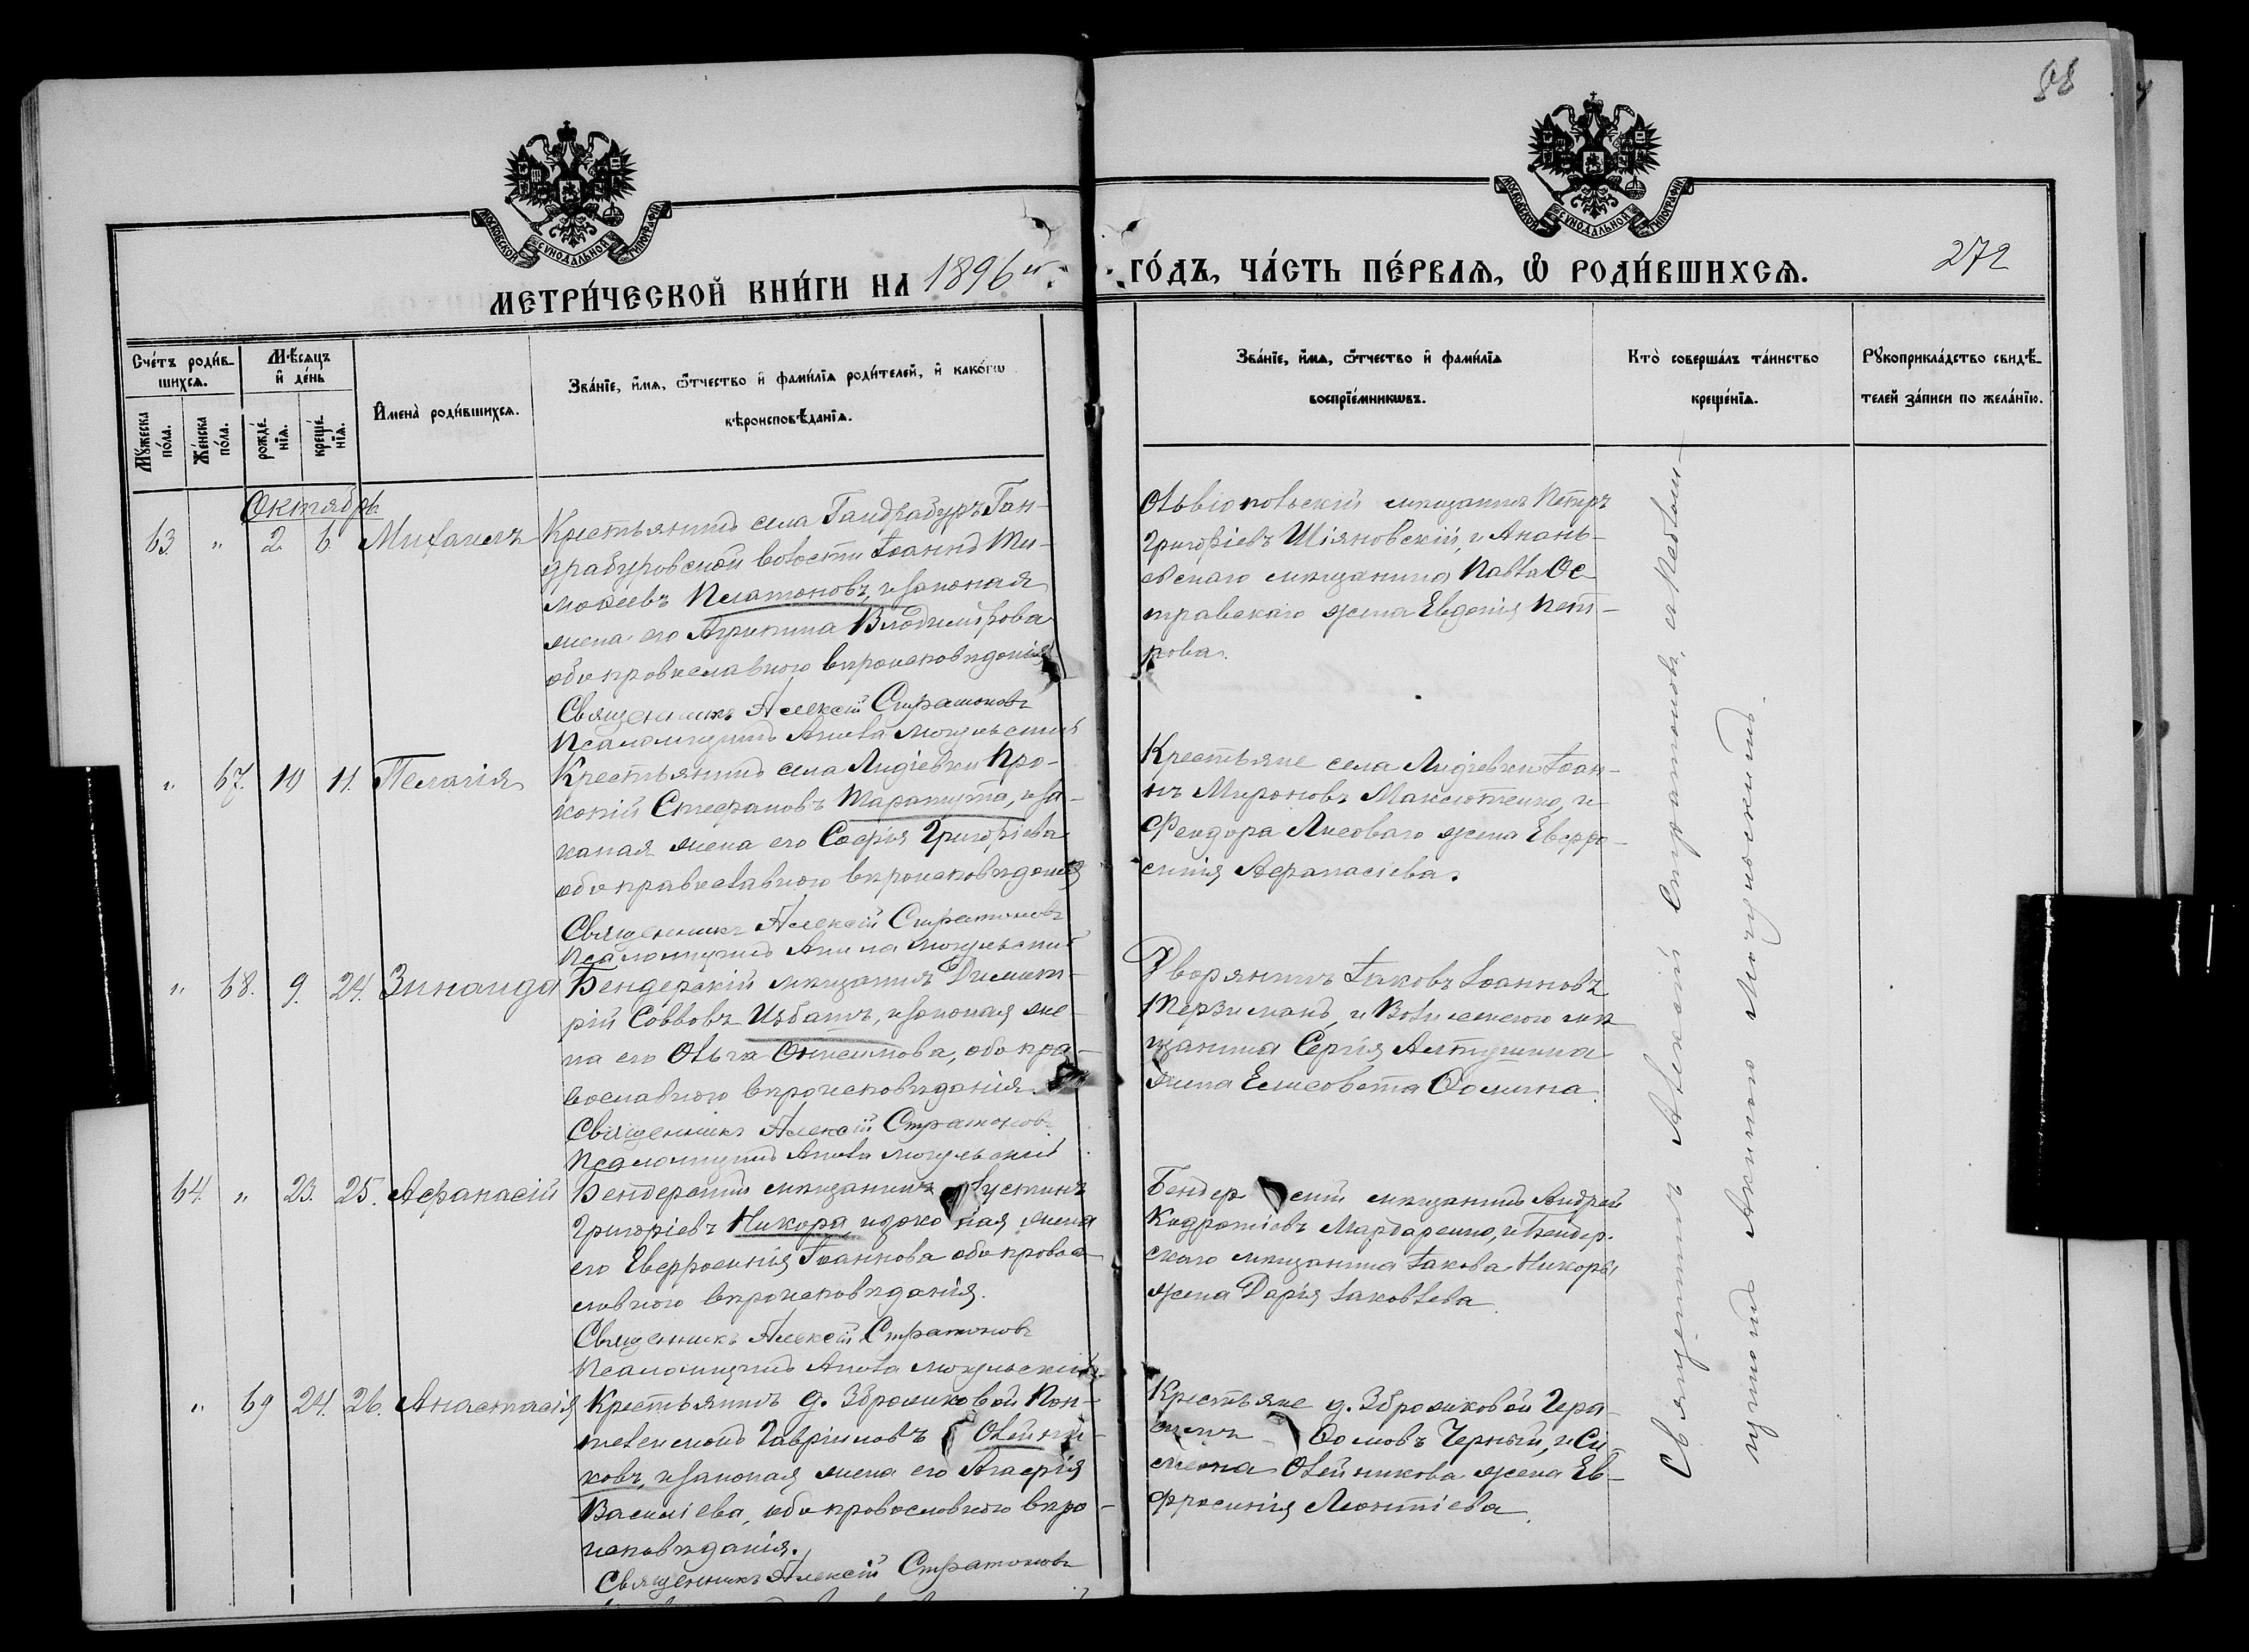 88
МОСКОВСКОЙ СѴНОДАЛЬНОЙ ТИПОГРАФІИ
МОСКОВСКОЙ СѴНОДАЛЬНОЙ ТИПОГРАФІИ
МЕТРИ́ЧЕСКОЙ КНИ́ГИ НА 1896й
ГО́ДЪ, ЧА́СТЬ ПЕ́РВАѦ, Ѡ҆ РОДИ́ВШИХСѦ.
272
Сче́тъ роди́в-
шихсѧ.
Мѣ́сѧцъ
и҆ де́нь
Мꙋ́жеска
по́ла.
Же́нска
по́ла.
рожде́-
нїѧ.
креще́-
нїѧ.
И҆мена̀ роди́вшихсѧ.
Зва́нїе, и҆́мѧ, ѻ҆́тчество и҆ фами́лїѧ роди́телей, и҆ како́гѡ
вѣроисповѣ́данїѧ.
Зва́нїе, и҆́мѧ, ѻ҆́тчество и҆ фами́лїѧ
воспрїе́мникѡвъ.
Кто̀ соверша́лъ та́инство
креще́нїѧ.
Рꙋкоприкла́дство свидѣ́-
телей за́писи по жела́нїю.
Октябрь
63. " 2. 6. Михаилъ
Крестьянинъ села Гандрабуръ Ган-
драбуровской волости Іоаннъ Ти-
моѳеевъ Платоновъ, и законая
жена его Агрипина Владимірова
обо православного вѣроисповѣданія
Священникъ Алексій Стратоновъ
Псаломщикъ Акила Могульскій
Ольвіопольскій мѣщанинъ Петръ
Григоріевъ Шіяновскій, и Анань-
евскаго мѣщанина Павла Ос-
травскаго жена Евдокія Пет-
рова.
" 67. 10 11. Пелагія
Крестьянинъ села Лидіевки Про-
копій Стефановъ Тарапута, и за-
коная жена его Софія Григоріева
обо православного вѣроисповѣданія
Священникъ Алексій Стратоновъ
Псаломщикъ Акила Могульскій
Крестьяне села Лидіевки Іоан-
нъ Мироновъ Максютенко, и
Феодора Лисоваго жена Евфро-
синія Афанасіева.
" 68. 9. 24. Зинаида
Бендерскій мѣщанинъ Димит-
рій Саввовъ Избашъ, и законая же-
на его Ольга Онисимова, обо пра-
вославного вѣроисповѣданія.
Священникъ Алексій Стратоновъ
Псаломщикъ Акила Могульскій
Дворянинъ Іаковъ Іоанновъ
Терзиманъ, и мѣ-
щанина Сергія Алтушина
жена Елисовета Ѳомина.
64. " 23. 25. Афанасій
Бендерскій мѣщанинъ Іустинъ
Григоріевъ Никора, и законая жена
его Евфросинія Іоаннова обо право-
славного вѣроисповѣданія.
Священникъ Алексій Стратоновъ
Псаломщикъ Акила Могульскій
Бендерскій мѣщанинъ Андрей
Кодратіевъ Мардаренко, и Бендер-
скаго мѣщанина Іакова Никоры
жена Дарія Іаковлева
" 69 24. 26. Анастасія
Крестьянинъ д. Зброшковой Пан-
телеимонъ Гавріиловъ Олейни-
ковъ, и законая жена его Агафія
Василіева, обо православного вѣро-
исповѣданія.
Священникъ Алексій Стратоновъ
Крестьяне д. Зброшковой Гера-
симъ Ѳомовъ Черный, и Си-
меона Олейникова жена Ев-
фросинія Леонтіева.
Священникъ Алексій Стратоновъ, съ Псалом-
щикомъ Акилою Могульскимъ.